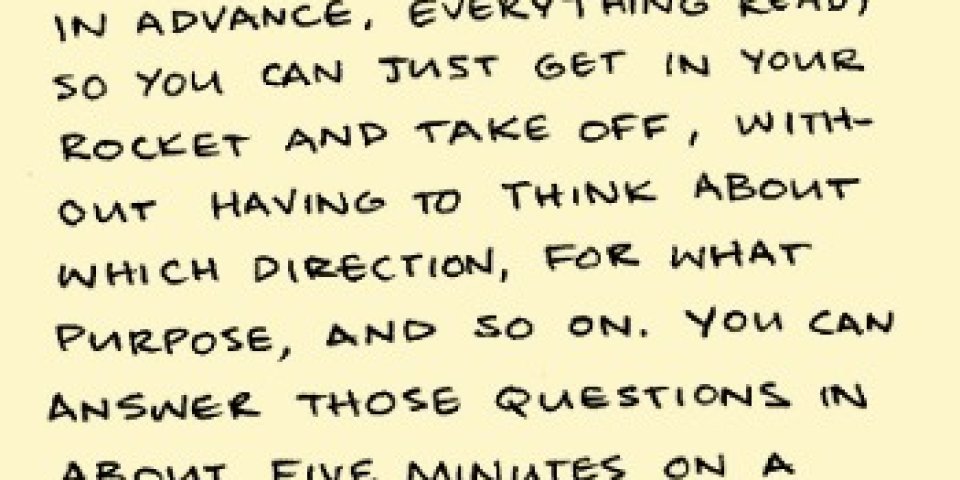 IN ADVANCE, EVERYTHING READY
SO YOU CAN JUST GET IN YOUR
ROCKET AND TAKE OFF, WITH-
OUT HAVING TO THINK ABOUT
WHICH DIRECTION, FOR WHAT
PURPOSE, AND SO ON. YOU CAN
ANSWER THOSE QUESTIONS IN
ABOUT FIVE MINUTES ON A